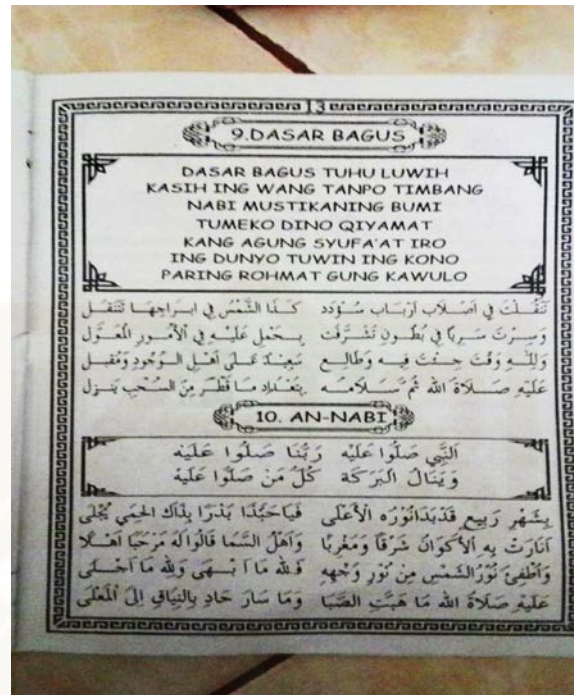 13
9.DASAR BAGUS
DASAR BAGUS TUHU LUWIH
KASIH ING WANG TANPO TIMBANG
NABI MUSTIKANING BUMI
TUMEKO DINO QIYAMAT
KANG AGUNG SYUFA'AT IRO
ING DUNYO TUWIN ING KONO
PARING ROHMAT GUNG KAWULO
تَنَقَّلْتَ فِي أَصْلَابِ أَرْبَابِ سُوْدَدِ كَذَا الشَّمْسُ فِي ابْرَاجِهَا تَتَنَقَّل
وَسِرْتَ سَرِيًا فِي بُطُونٍ تَشَرَّفَتْ بِحَمْلٍ عَلَيْهِ فِي الْأُمُورِ الْمُعَوَّل
وَلِلّٰهِ وَقْتٌ جِئْتَ فِيهِ وَطَالِع سَعِيدٌ عَلَى أَهْلِ الْوُجُودِ وَمُقْبِل
عَلَيْهِ صَلَاةُ الله ثُمَّ سَلَامُهُ بِتَعْدَادِ مَا قَطْرٌ مِنَ السُّحْبِ يَنْزِل
10. AN-NABI
اَلنَّبِي صَلُّوا عَلَيْه رَبُّنَا صَلُّوا عَلَيْه
وَيَنَالُ الْبَرَكَة كُلُّ مَنْ صَلُّوا عَلَيْه
بِشَهْرِ رَبِيعٍ قَدْبَدَانُوْرُه الْأَعْلَى فَيَاحَبَّذَا بَدْرًا بِذَاكَ الْحِمَي يُجْلَى
اَنَارَتْ بِهِ الْأَكْوَانُ شَرْقًا وَمَغْرِبًا وَاَهْلُ السَّمَا قَالُوا لَه مَرْحَبًا اَهْلًا
وَاُطْفِئَ نُوْرُالشَّمْسِ مِنْ نُوْرِ وَجْهِهِ فَلِلّٰه مَا اَبْهَى وَلِلّٰه مَا اَحْلَى
عَلَيْهِ صَلَاةُ الله مَا هَبَّتِ الصَّبَا وَمَا سَارَ حَادٍ بِالنِّيَاقِ اِلَى الْمَعْلَى